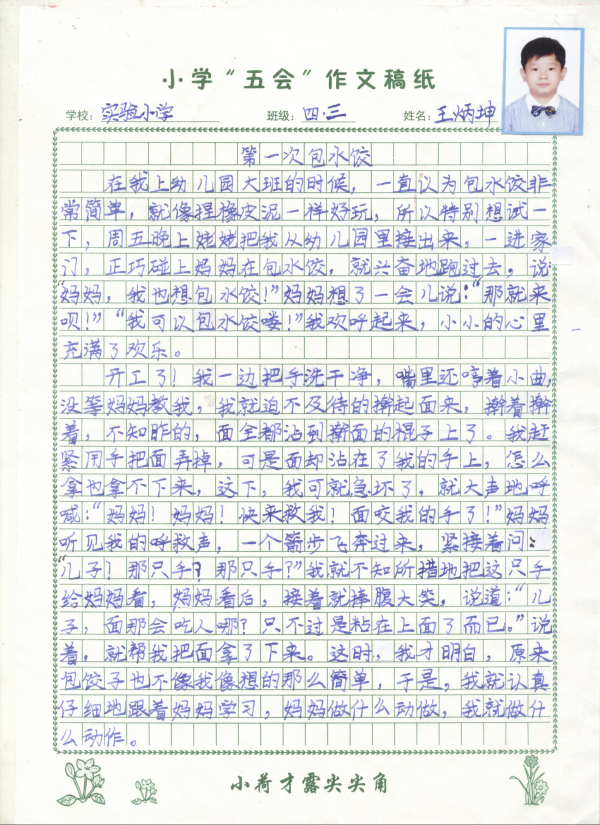 小学“五会”作文稿纸
学校：实验小学 班级：四.三 姓名：王炳坤
第一次包水饺
在我上幼儿园大班的时候，一直认为包水饺非
常简单，就像捏橡皮泥一样好玩，所以特别想试一
下，周五晚上姥姥把我从幼儿园里接出来，一进家
门，正巧碰上妈妈在包水饺，就兴奋地跑过去，说
“妈妈，我也想包水饺！”妈妈想了一会儿说：“那就来
呗！”“我可以包水饺喽！”我欢呼起来，小小的心里
充满了欢乐。
开工了！我一边把手洗干净，嘴里还哼着小曲，
没等妈妈教我，我就迫不及待的擀起面来，擀着擀
着，不知咋的，面全都沾到擀面的棍子上了。我赶
紧用手把面弄掉，可是面却沾在了我的手上，怎么
拿也拿不下来，这下，我可就急坏了，就大声地呼
喊：“妈妈！妈妈！快来救我！面咬我的手了！”妈妈
听见我的呼救声，一个箭步飞奔过来，紧接着问：
“儿子！那只手？那只手？”我就不知所措地把这只手
给妈妈看，妈妈看后，接着就捧腹大笑，说道：“儿
子，面那会吃人哪？只不过是粘在上面了而已。”说
着，就帮我把面拿了下来。这时，我才明白，原来
包饺子也不像我像想的那么简单，于是，我就认真
仔细地跟着妈妈学习，妈妈做什么动做，我就做什
么动作。
小荷才露尖尖角